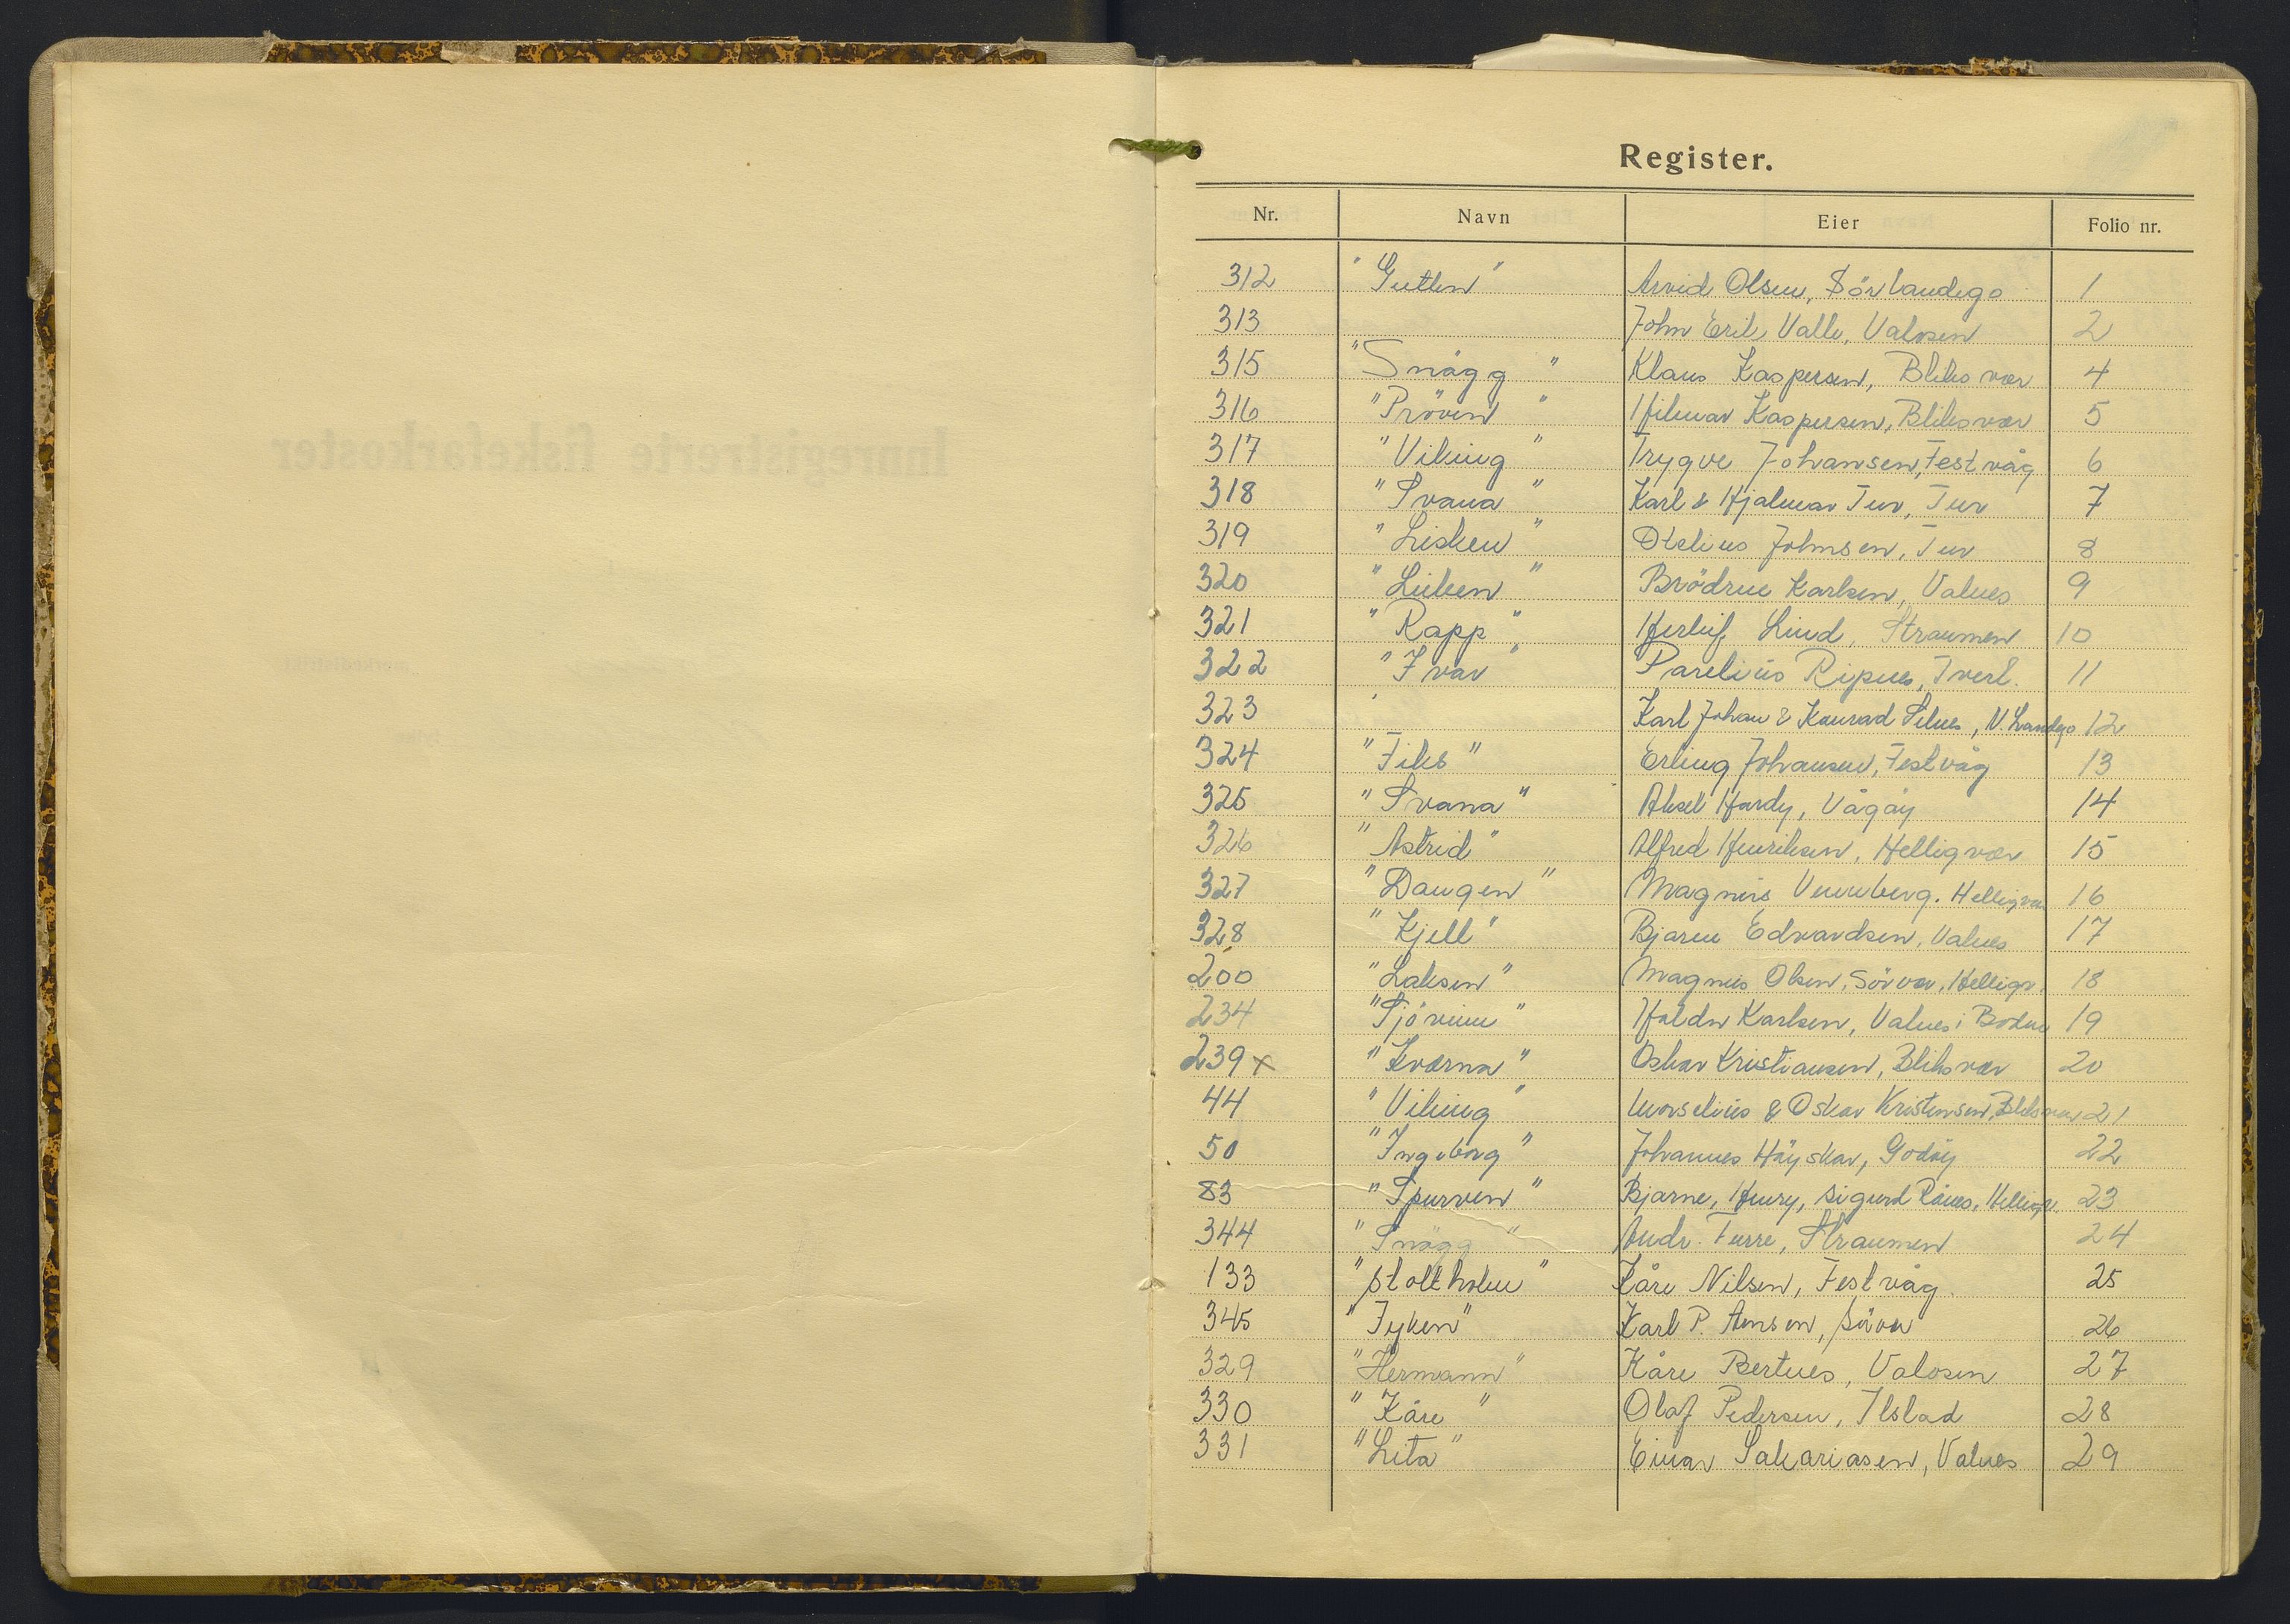 Register.
Nr. Navn Eier Folio nr.
312 "Gutten" Arvid Olsen, Sörlandego 1
313 John Erik Valle, Valosen 2
315 "Snögg" Klaus Kaspersen, Bliksvær 4
316 "Pröven" Hilmar Kaspersen, Bliksvær 5
317 "Viking" Trygve Johansen, Festvåg 6
318 "Svana" Karl & Hjalmar Tuv, Tuv 7
319 "Lisken" Otelius Johnsen, Tuv 8
320 "Liiken" Brödrue Karlsen, Valnes 9
321 "Rapp" Herleif Lind, Straumen 10
322 "Ivar" Parelius Ripnes, Tverl. 11
323 Karl Johan & Konrad Selnes, N. Landego 12
324 "Fiks" Erling Johansen, Festvåg 13
325 "Svana" Aksel Hardy, Vågöy 14
326 "Astrid" Alfred Henriksen, Helligvær 15
327 "Daugen" Magnus Vennberg. Helligvær 16
328 "Kjell" Bjarne Edvardsen, Valnes 17
200 "Laksen" Magnus Olsen, Sörvær, Helligv. 18
234 "Sjövinn" Haldor Karlsen, Valnes i Bodin 19
239 x "Kværna" Oskar Kristiansen, Bliksvær 20
44 "Viking" & Oskar Kristensen, Bliksvær 21
50 "Ingeborg" Johannes Höyskar, Godöy 22
83 "Spurven" Bjarne, Henry, Sigurd Rånes, Helligv. 23
344 "Snögg" Andr. Furre, Straumen 24
133 "Stoltholm" Kåre Nilsen, Festvåg. 25
345 "Jyken" Karl P. Arnsen, Sörvær 26
329 "Hermann" Kåre Bertnes, Valosen 27
330 "Kåre" Olaf Pedersen, Ilstad 28
331 "Lita" Einar Sakariasen, Valnes 29